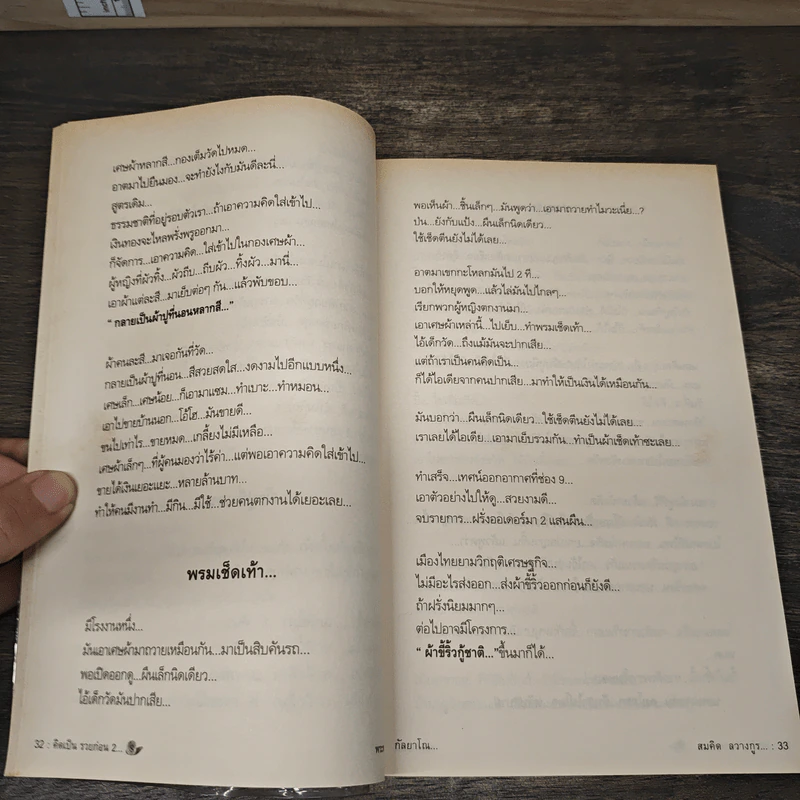 เศษผ้าหลากสี...กองเต็มวัดไปหมด...
อาตมาไปยืนมอง...จะทำยังไงกับมันดีละนี่...
สูตรเดิม...
ธรรมชาติที่อยู่รอบตัวเรา...ถ้าเอาความคิดใส่เข้าไป...
เงินทองจะไหลพรั่งพรูออกมา...
ก็จัดการ...เอาความคิด...ใส่เข้าไปในกองเศษผ้า...
ผู้หญิงที่ผัวทิ้ง...ผัวถีบ...ถีบผัว...ทิ้งผัว...มานี่...
เอาผ้าแต่ละสี...มาเย็บต่อๆ กัน...แล้วพับขอบ...
" กลายเป็นผ้าปูที่นอนหลากสี..."
ผ้าคนละสี...มาเจอกันที่วัด...
กลายเป็นผ้าปูที่นอน...สีสวยสดใส...งดงามไปอีกแบบหนึ่ง...
เศษเล็ก...เศษน้อย...ก็เอามาแซม...ทำเบาะ...ทำหมอน...
เอาไปขายบ้านนอก...โอ้โฮ...มันขายดี...
ขนไปเท่าไร...ขายหมด...เกลี้ยงไม่มีเหลือ...
เศษผ้าเล็กๆ...ที่ผู้คนมองว่าไร้ค่า...แต่พอเอาความคิดใส่เข้าไป...
ขายได้เงินเยอะแยะ...หลายล้านบาท...
ทำให้คนมีงานทำ...มีกิน...มีใช้...ช่วยคนตกงานได้เยอะเลย...
พรมเช็ดเท้า...
มีโรงงานหนึ่ง...
มันเอาเศษผ้ามาถวายเหมือนกัน...มาเป็นสิบคันรถ...
พอเปิดออกดู...ผืนเล็กนิดเดียว...
ไอ้เด็กวัดมันปากเสีย...
32 : คิดเป็น รวยก่อน 2...
พอเห็นผ้า...ชิ้นเล็กๆ...มันพูดว่า...เอามาถวายทำไมวะเนี่ย...?
ป่น...ยังกับแป้ง...ผืนเล็กนิดเดียว...
ใช้เช็ดตีนยังไม่ได้เลย...
อาตมาเขกกะโหลกมันไป 2 ที...
บอกให้หยุดพูด...แล้วไล่มันไปไกลๆ...
เรียกพวกผู้หญิงตกงานมา...
เอาเศษผ้าเหล่านี้...ไปเย็บ...ทำพรมเช็ดเท้า...
ไอ้เด็กวัด...ถึงแม้มันจะปากเสีย...
แต่ถ้าเราเป็นคนคิดเป็น...
ก็ได้ไอเดียจากคนปากเสีย...มาทำให้เป็นเงินได้เหมือนกัน...
มันบอกว่า...ผืนเล็กนิดเดียว...ใช้เช็ดตีนยังไม่ได้เลย...
เราเลยได้ไอเดีย...เอามาเย็บรวมกัน...ทำเป็นผ้าเช็ดเท้าซะเลย...
ทำเสร็จ...เทศน์ออกอากาศที่ช่อง 9...
เอาตัวอย่างไปให้ดู...สวยงามดี...
จบรายการ...ฝรั่งออเดอร์มา 2 แสนผืน...
เมืองไทยยามวิกฤติเศรษฐกิจ...
ไม่มีอะไรส่งออก...ส่งผ้าขี้ริ้วออกก่อนก็ยังดี...
ถ้าฝรั่งนิยมมากๆ...
ต่อไปอาจมีโครงการ...
" ผ้าขี้ริ้วกู้ชาติ..."ขึ้นมาก็ได้...
กัลยาโณ...
สมคิด ลวางกูร... : 33